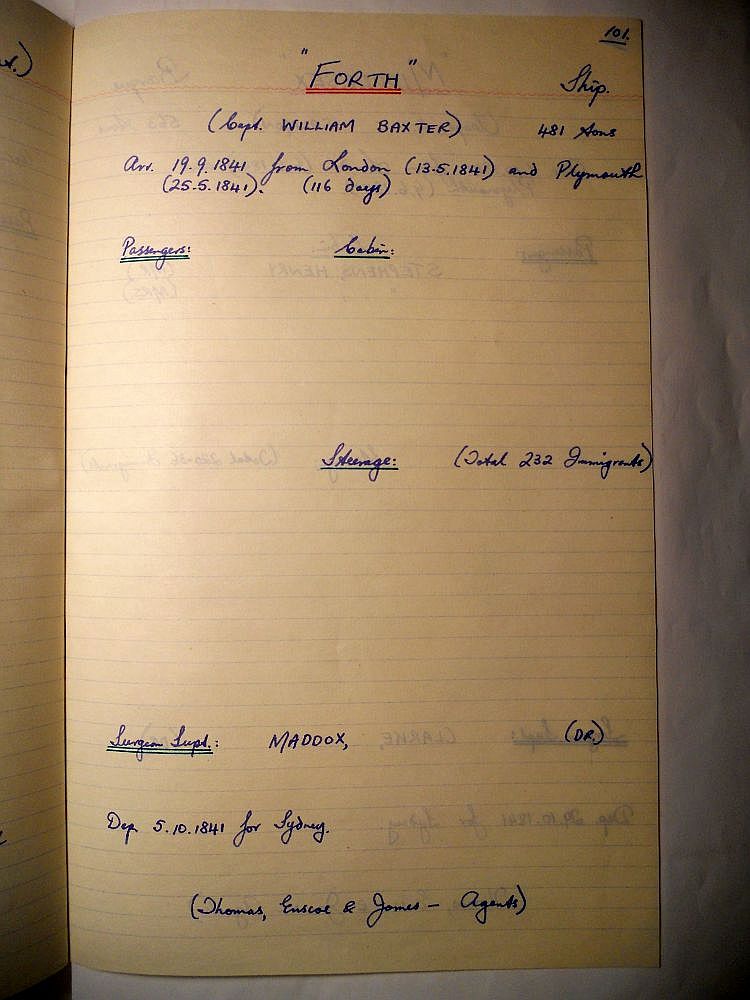 101.
"FORTH" Ship.
(Capt. WILLIAM BAXTER) 481 tons
Arr. 19.9.1841 from London (13.5.1841) and Plymouth
(25.5.1841). (116 days)
Passengers: Cabin:
Steerage: (Total 232 Immigrants)
Surgeon Supt.: MADDOX, (DR.)
Dep. 5.10.1841 for Sydney.
(Thomas, Enscoe & James - Agents)